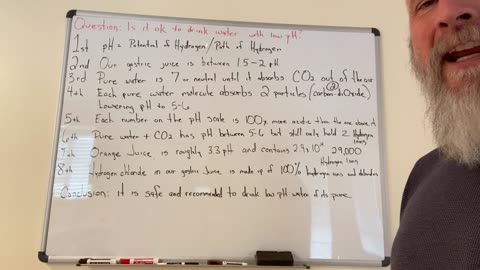 Question: Is it ok to drink water with low pH?
1st pH = Potential of Hydrogen/Path of Hydrogen
2nd Our gastric juice is between 1.5-2 pH
3rd Pure water is 7 or neutral until it absorbs CO2 out of the air
4th Each pure water molecule absorbs 2 particles (carbon dioxide)
Lowering pH to 5-6
5th Each number on the pH scale is 100x more acidic than the one above it
6th Pure water + CO2 has pH between 5-6 but still only hold 2 Hydrogen Ions
7th Orange Juice is roughly 3.3 pH and contains 2.9x10 29,000
Hydrogen Ions
8th Hydrogen chloride in our gastric juice is made up of 100% hydrogen ions and
Conclusion: it is safe and recommended to drink low pH water if its pure